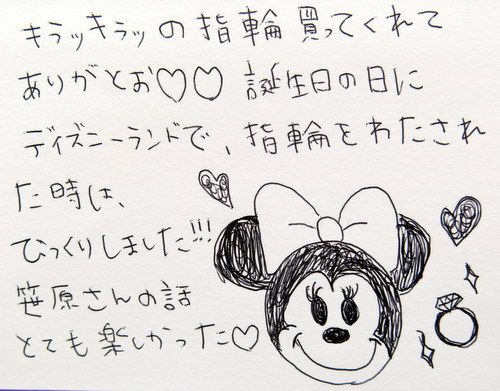 キラッキラッの指輪買ってくれて
ありがとお♡♡ 誕生日の日に
ディズニーランドで、指輪をわたされ
た時は、
びっくりしました!!!
笹原さんの話
とても楽しかった♡